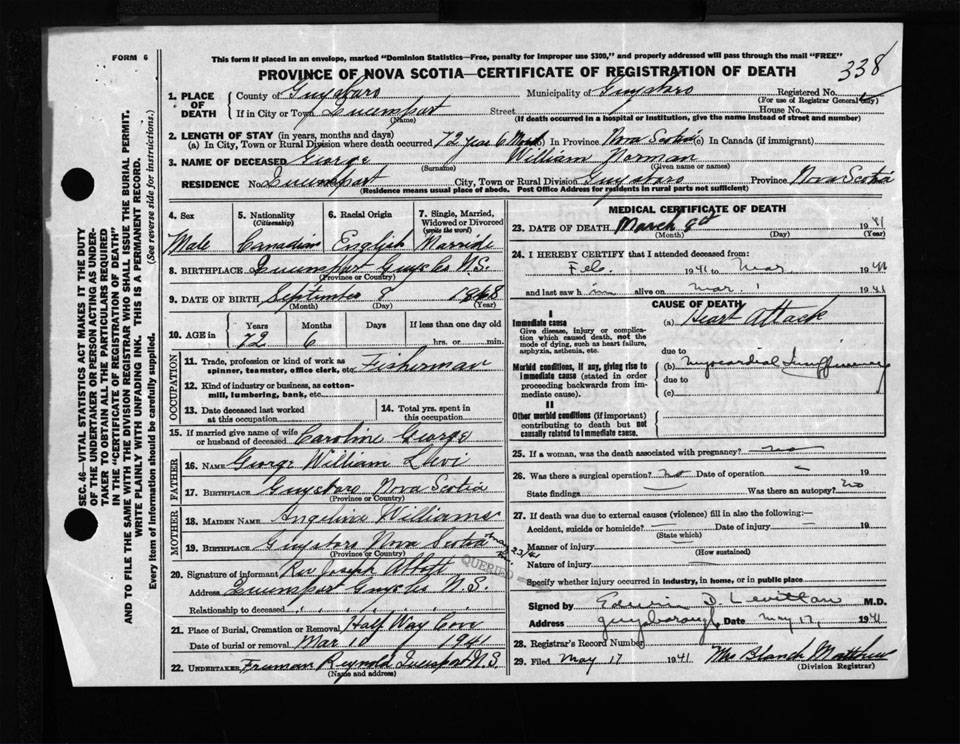 FORM 6
This form if placed in an envelope, marked "Dominion Statistics—Free, penalty for improper use $300," and properly addressed will pass through the mail "FREE"
PROVINCE OF NOVA SCOTIA—CERTIFICATE OF REGISTRATION OF DEATH
338
SEC. 46—VITAL STATISTICS ACT MAKES IT THE DUTY
OF THE UNDERTAKER OR PERSON ACTING AS UNDER-
TAKER TO OBTAIN ALL THE PARTICULARS REQUIRED
IN THE "CERTIFICATE OF REGISTRATION OF DEATH"
AND TO FILE THE SAME WITH THE DIVISION REGISTRAR WHO SHALL ISSUE THE BURIAL PERMIT.
WRITE PLAINLY WITH UNFADING INK. THIS IS A PERMANENT RECORD.
Every item of information should be carefully supplied. (See reverse side for instructions.)
1. PLACE OF DEATH
County of Guysboro Municipality of Guysboro Registered No.
(For use of Registrar General only)
If in City or Town Street House No.
(Name) (If death occurred in a hospital or institution, give the name instead of street and number)
2. LENGTH OF STAY (in years, months and days)
(a) In City, Town or Rural Division where death occurred 72 year 6 Month (b) In Province Nova Scotia (c) In Canada (if immigrant)
3. NAME OF DECEASED George William Norman
(Surname) (Given name or names)
RESIDENCE No. City, Town or Rural Division Guysboro Province Nova Scotia
(Residence means usual place of abode. Post Office Address for residents in rural parts not sufficient)
4. Sex 5. Nationality (Citizenship) 6. Racial Origin 7. Single, Married, Widowed or Divorced (write the word)
Male Canadian English
8. BIRTHPLACE N.S.
(Province or Country)
9. DATE OF BIRTH September 9 1868
(Month) (Day) (Year)
10. AGE in Years Months Days If less than one day old
72 6 hrs. or min.
OCCUPATION
11. Trade, profession or kind of work as spinner, teamster, office clerk, etc. Fisherman
12. Kind of industry or business, as cotton-mill, lumbering, bank, etc.
13. Date deceased last worked at this occupation
14. Total yrs. spent in this occupation
15. If married give name of wife or husband of deceased Caroline George
FATHER
16. NAME George William Levi
17. BIRTHPLACE Guysboro Nova Scotia
(Province or Country)
MOTHER
18. MAIDEN NAME Angeline Williams
19. BIRTHPLACE Guysboro Nova Scotia
(Province or Country)
QUERIED
20. Signature of informant Rev Joseph Abbott
Address N.S.
Relationship to deceased
21. Place of Burial, Cremation or Removal Half Way Cove
Date of burial or removal Mar 10 1941
22. UNDERTAKER Freeman Reynold N.S.
(Name and address)
MEDICAL CERTIFICATE OF DEATH
23. DATE OF DEATH March 9th 1941
(Month) (Day) (Year)
24. I HEREBY CERTIFY that I attended deceased from:
Feb. 1941 to Mar 1941
and last saw him alive on Mar. 1 1941
CAUSE OF DEATH
I
Immediate cause
Give disease, injury or complication which caused death, not the mode of dying, such as heart failure, asphyxia, asthenia, etc.
(a) Heart Attack
due to
Morbid conditions, if any, giving rise to immediate cause (stated in order proceeding backwards from immediate cause).
(b) Myocardial Insufficiency
due to
(c)
II
Other morbid conditions (if important) contributing to death but not causally related to immediate cause.
25. If a woman, was the death associated with pregnancy? no
26. Was there a surgical operation? no Date of operation — 19
State findings — Was there an autopsy? no
27. If death was due to external causes (violence) fill in also the following:—
Accident, suicide or homicide? — Date of injury — 19
(State which)
Manner of injury
(How sustained)
Nature of injury —
Specify whether injury occurred in industry, in home, or in public place
Signed by D. M.D.
Address Guysborough Date May 17, 1941
28. Registrar's Record Number
29. Filed May 17 1941 Mrs Blanch Matthew
(Division Registrar)